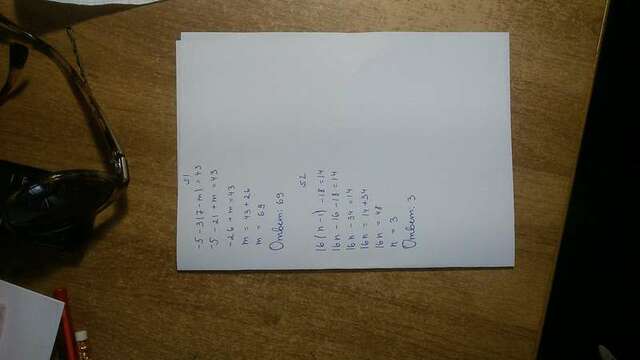 №1
-5-3(7-m)=43
-5-21+m=43
-26+m=43
m=43+26
m=69
Ответ: 69
№2
16(n-1)-18=14
16n-16-18=14
16n-34=14
16n=14+34
16n=48
n=3
Ответ: 3